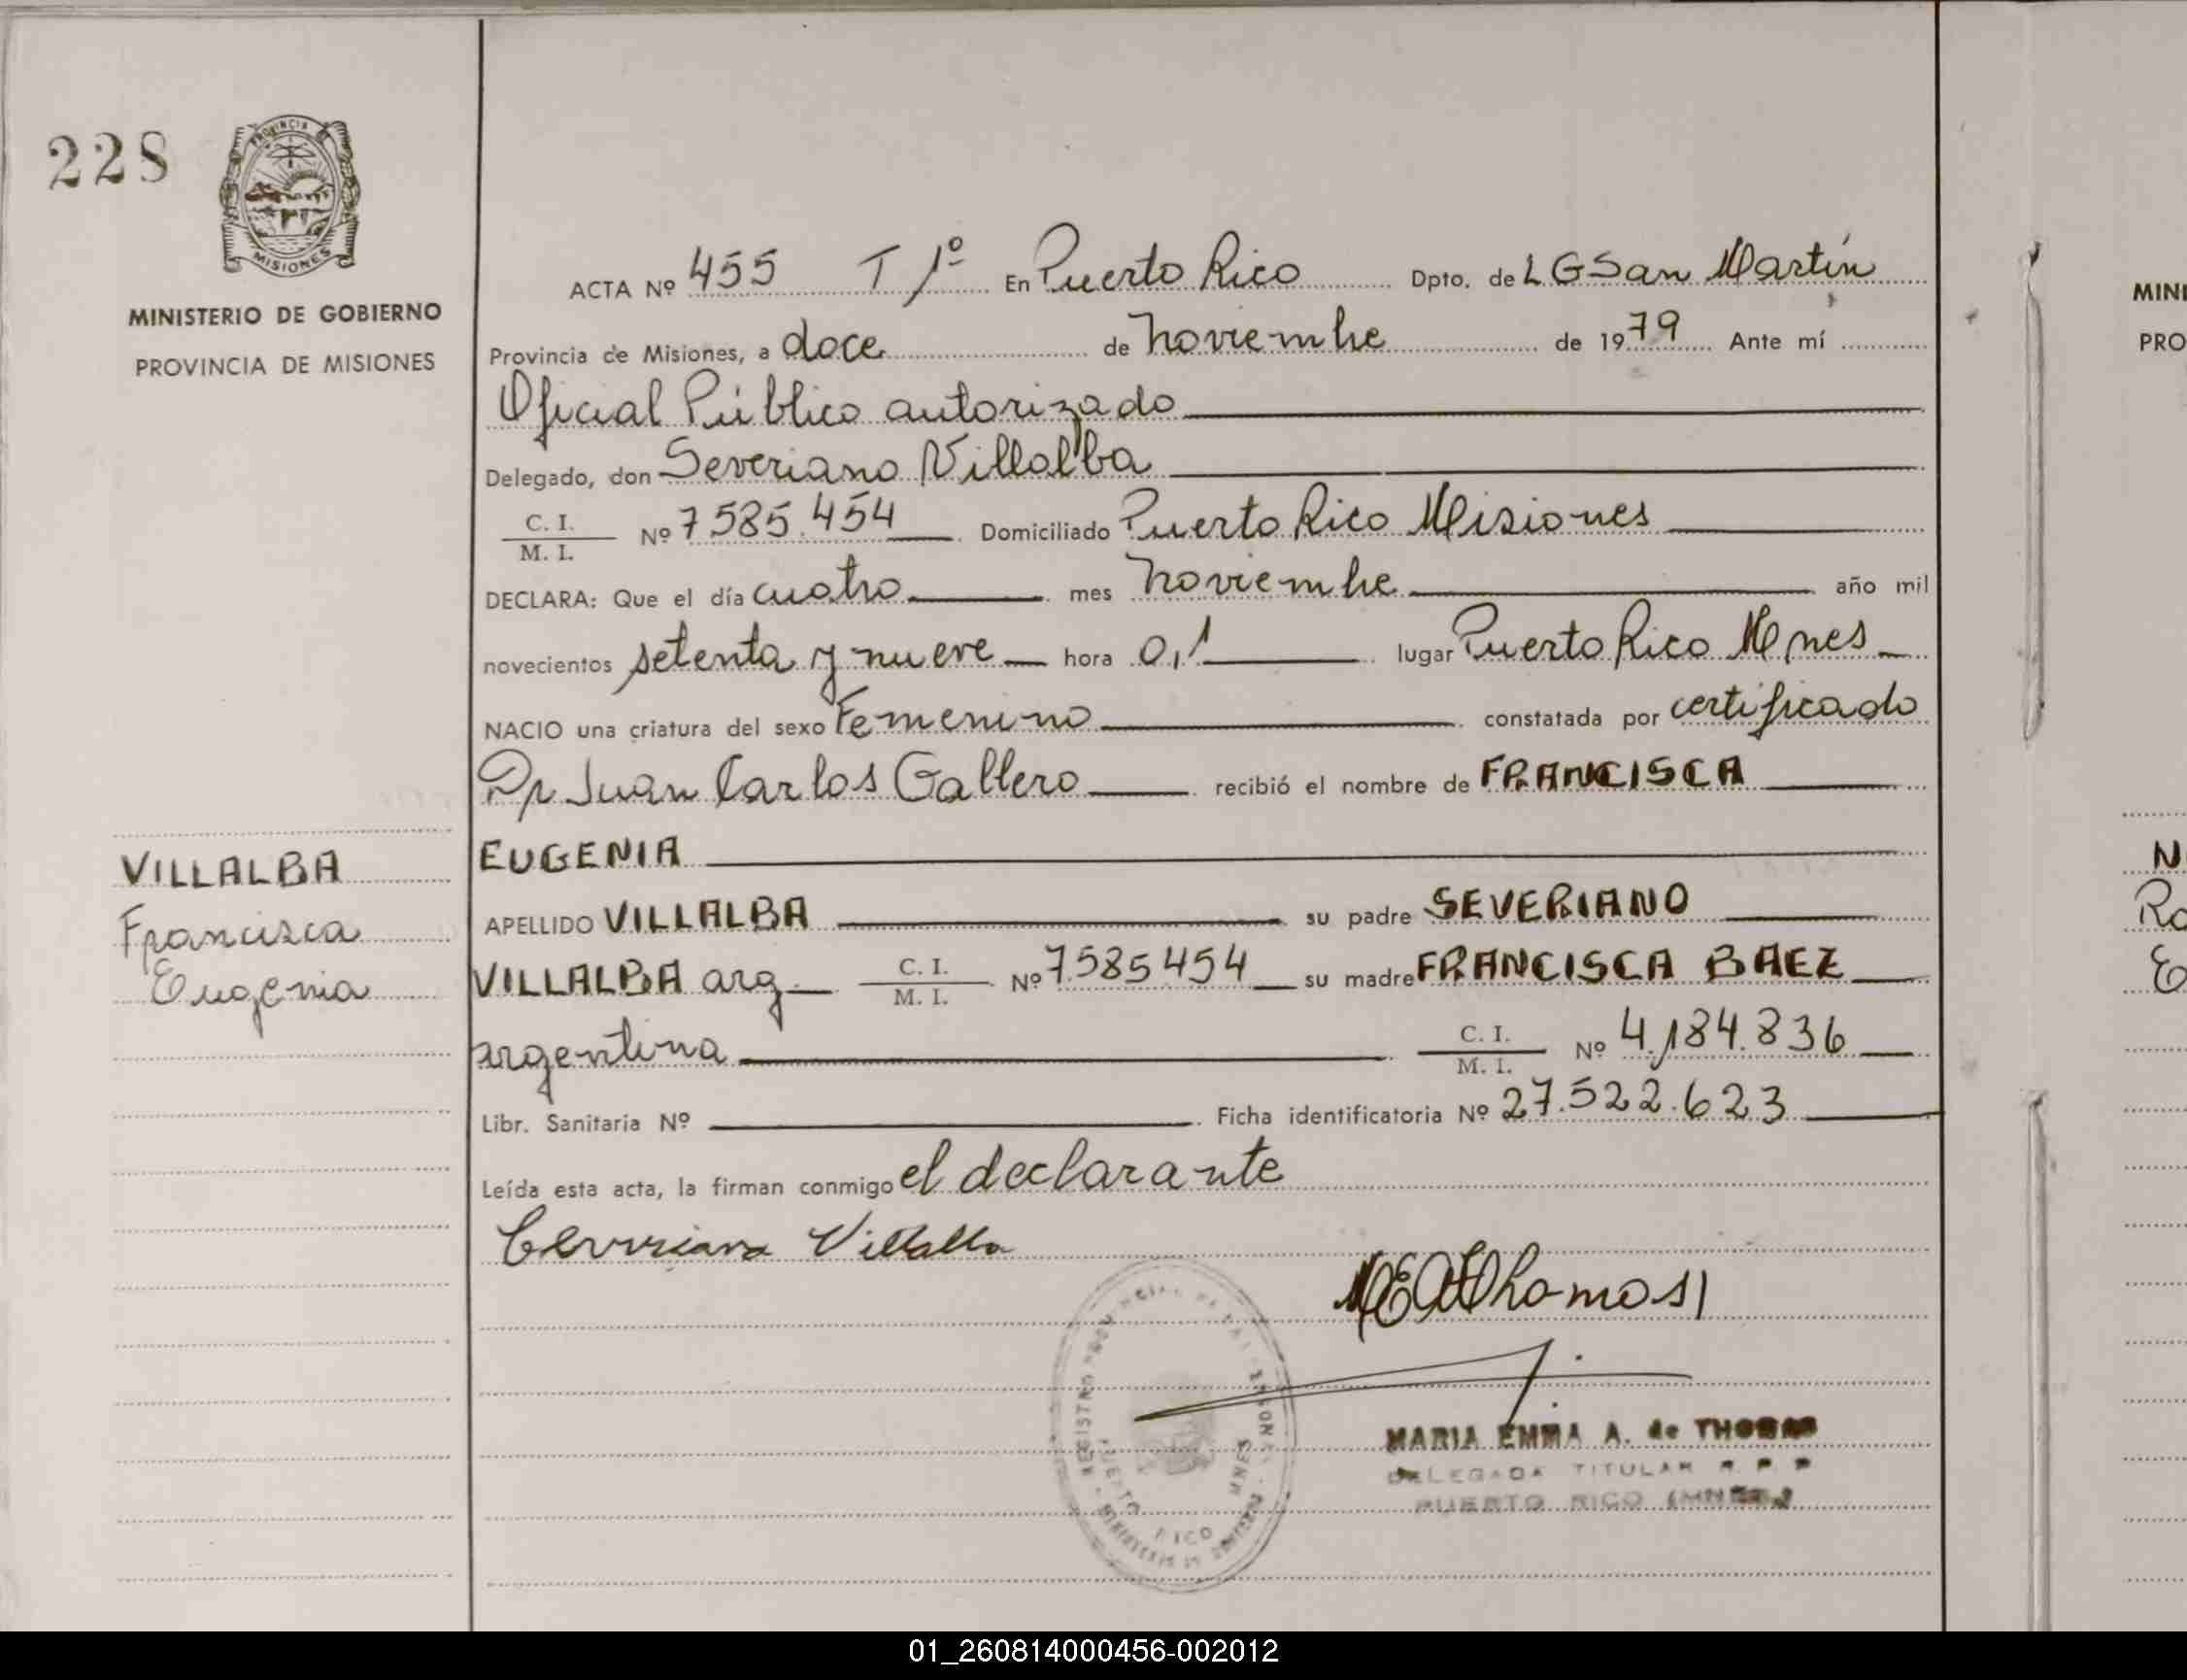 228
PROVINCIA
MISIONES
MINISTERIO DE GOBIERNO
PROVINCIA DE MISIONES
VILLALBA
Francisca
Eugenia
ACTA Nº 455 T 1º En Puerto Rico Dpto. de L G San Martín
Provincia de Misiones, a doce de noviembre de 1979 Ante mí
Oficial Público autorizado
Delegado, don Severiano Villalba
C. I. / M. I. Nº 7585.454 Domiciliado Puerto Rico Misiones
DECLARA: Que el día cuatro mes noviembre año mil
novecientos setenta y nueve hora 0,1 lugar Puerto Rico Mnes
NACIO una criatura del sexo Femenino constatada por certificado
Dr Juan Carlos Gallero recibió el nombre de FRANCISCA
EUGENIA
APELLIDO VILLALBA su padre SEVERIANO
VILLALBA arg C. I. / M. I. Nº 7.585454 su madre FRANCISCA BAEZ
argentina C. I. / M. I. Nº 4.184.836
Libr. Sanitaria Nº Ficha identificatoria Nº 27.522.623
Leída esta acta, la firman conmigo el declarante
Villalba
MARIA EMMA A. de THOMAS
DELEGADA TITULAR R P P
PUERTO RICO (MNES.)
RICO
MNES
MINI
PRO
N
Ro
E
01_260814000456-002012